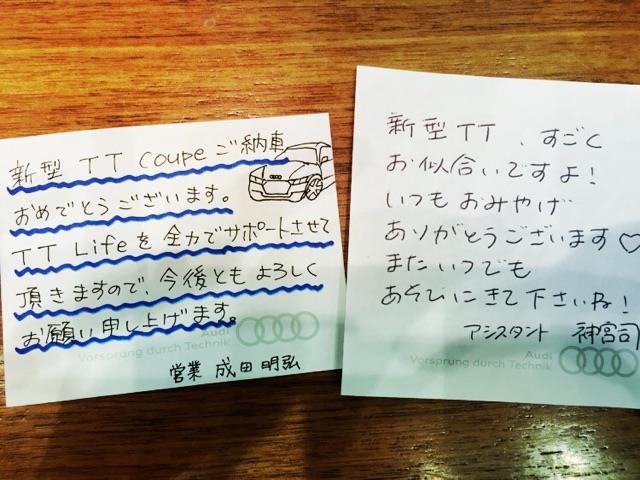 新型 TT Coupe ご納車
おめでとうございます。
TT Lifeを全力でサポートさせて
頂きますので、今後ともよろしく
お願い申し上げます。
Audi
Vorsprung durch Technik
営業 成田 明弘
新型TT、すごく
お似合いですよ!
いつもおみやげ
ありがとうございます♡
またいつでも
あそびにきて下さいね!
アシスタント 神宮司
Audi
Vorsprung durch Technik